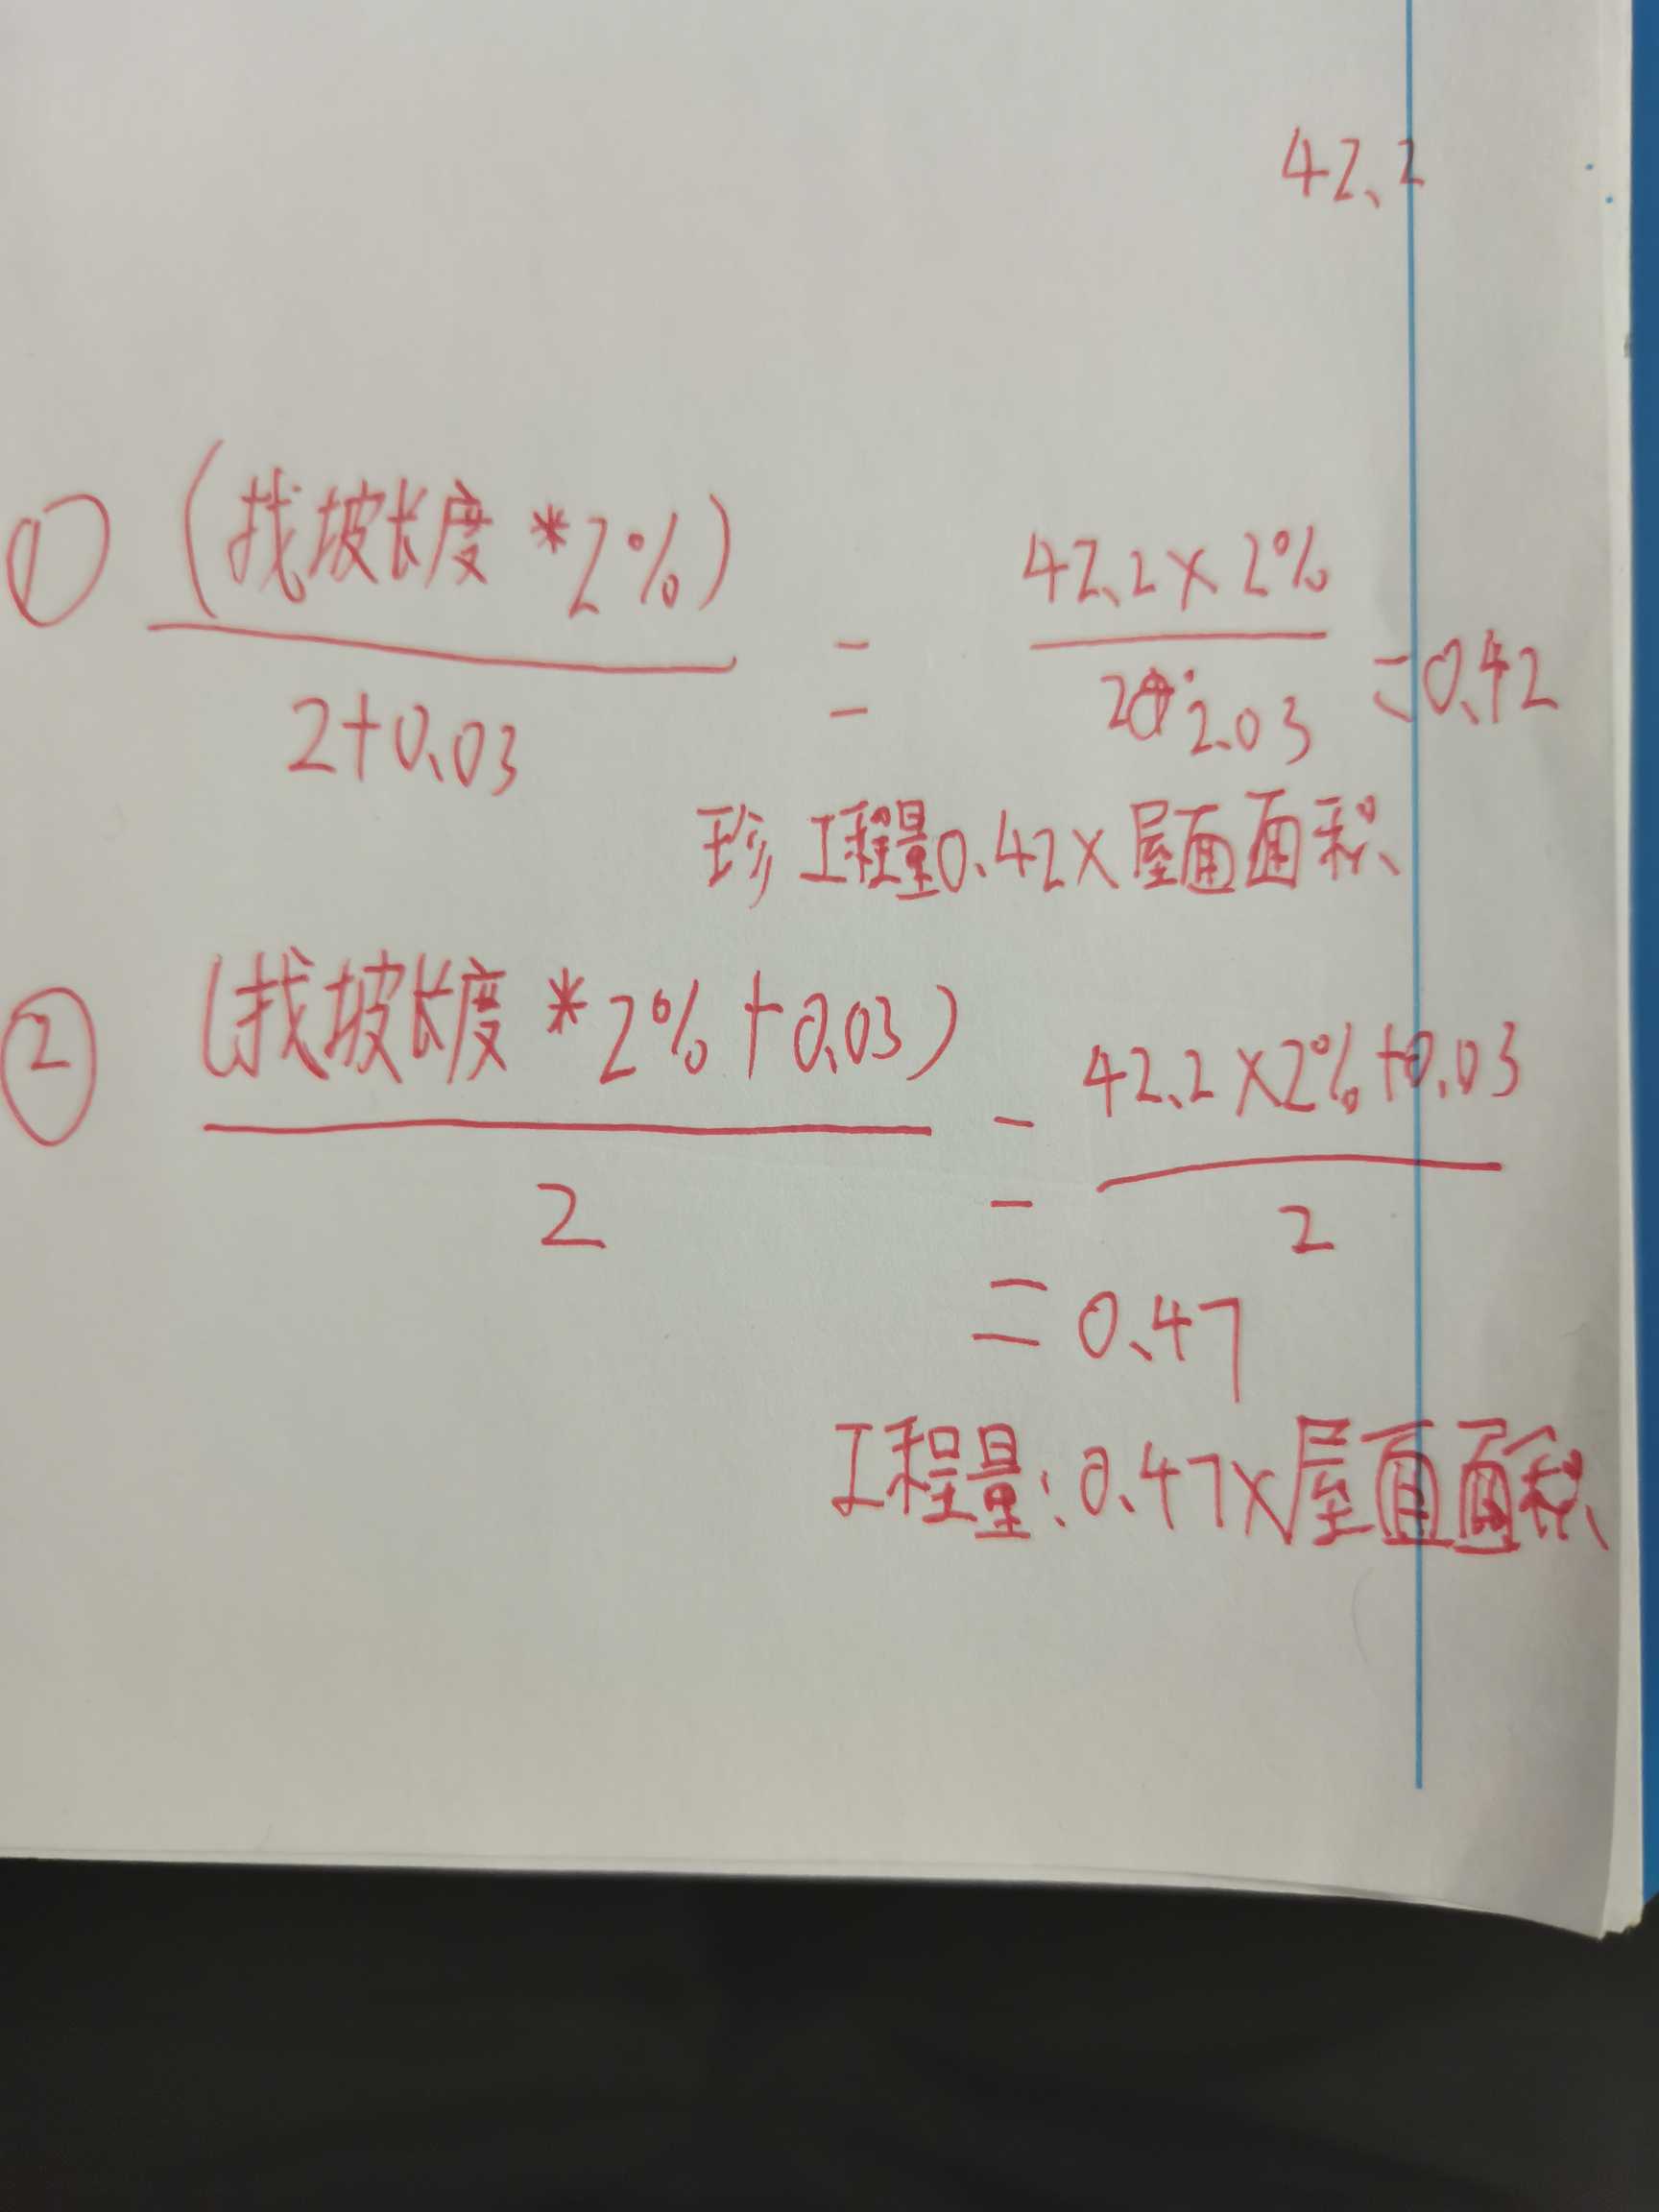 42.2
① (找坡长度*2%) / 2+0.03 = 42.2×2% / 2.03 =0.42
工程量0.42×屋面面积
② (找坡长度*2%+0.03) / 2 = 42.2×2%+0.03 / 2
=0.47
工程量:0.47×屋面面积